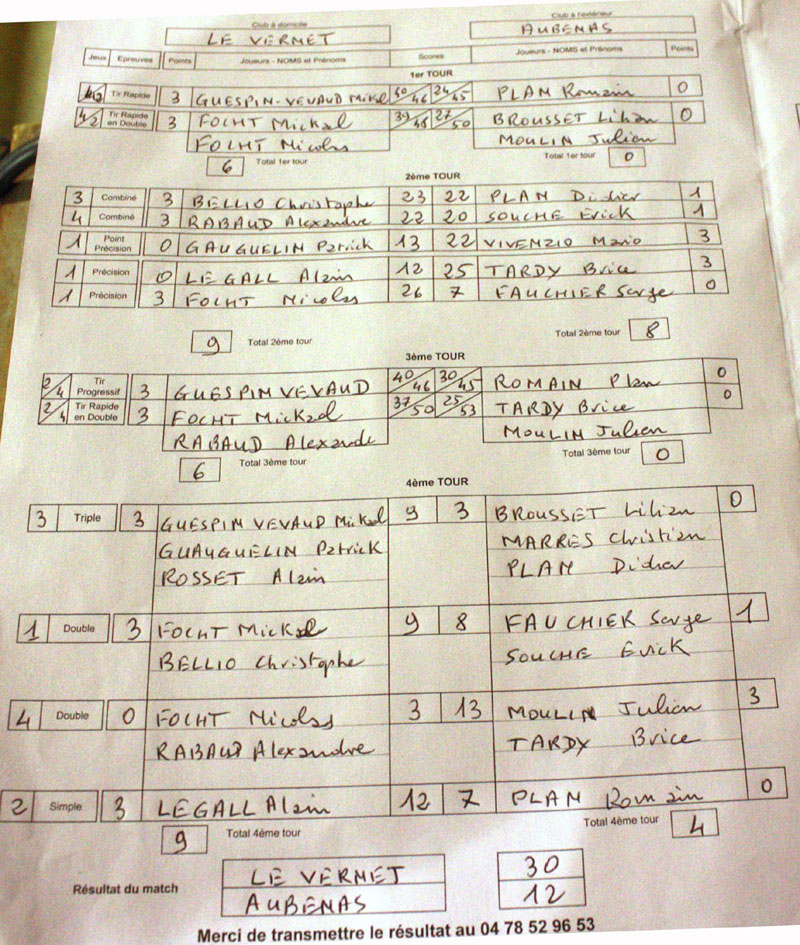 Club à domicile Club à l'extérieur
LE VERNET AUBENAS
Jeux Epreuves Points Joueurs - NOMS et Prénoms Scores Joueurs - NOMS et Prénoms Points
1er TOUR
Tir Rapide 3 GUESPIN-VEVAUD Mikel 50/46 24/45 PLAN Romain 0
4/2 Tir Rapide en Double 3 FOCHT Mickael 39/48 27/50 BROUSSET Lilian 0
FOCHT Nicolas MOULIN Julien
6 Total 1er tour Total 1er tour 0
2ème TOUR
3 Combiné 3 BELLIO Christophe 23 22 PLAN Didier 1
4 Combiné 3 RABAUD Alexandre 22 20 SOUCHE Erick 1
1 Point Précision 0 GAUGUELIN Patrick 13 22 VIVENZIO Mario 3
1 Précision 0 LEGALL Alain 12 25 TARDY Brice 3
1 Précision 3 FOCHT Nicolas 26 7 FAUCHIER Serge 0
9 Total 2ème tour Total 2ème tour 8
3ème TOUR
2/4 Tir Progressif 3 GUESPIN VEVAUD 40/46 30/45 ROMAIN Plan 0
2/4 Tir Rapide en Double 3 FOCHT Mickael 37/50 25/53 TARDY Brice 0
RABAUD Alexandre MOULIN Julien
6 Total 3ème tour Total 3ème tour 0
4ème TOUR
3 Triple 3 GUESPIN VEVAUD Mickael 9 3 BROUSSET Lilian 0
GUAUGUELIN Patrick MARRES Christian
ROSSET Alain PLAN Didier
1 Double 3 FOCHT Mickael 9 8 FAUCHIER Serge 1
BELLIO Christophe SOUCHE Erick
4 Double 0 FOCHT Nicolas 3 13 MOULIN Julien 3
RABAUD Alexandre TARDY Brice
2 Simple 3 LEGALL Alain 12 7 PLAN Romain 0
9 Total 4ème tour Total 4ème tour 4
Résultat du match LE VERNET 30
AUBENAS 12
Merci de transmettre le résultat au 04 78 52 96 53